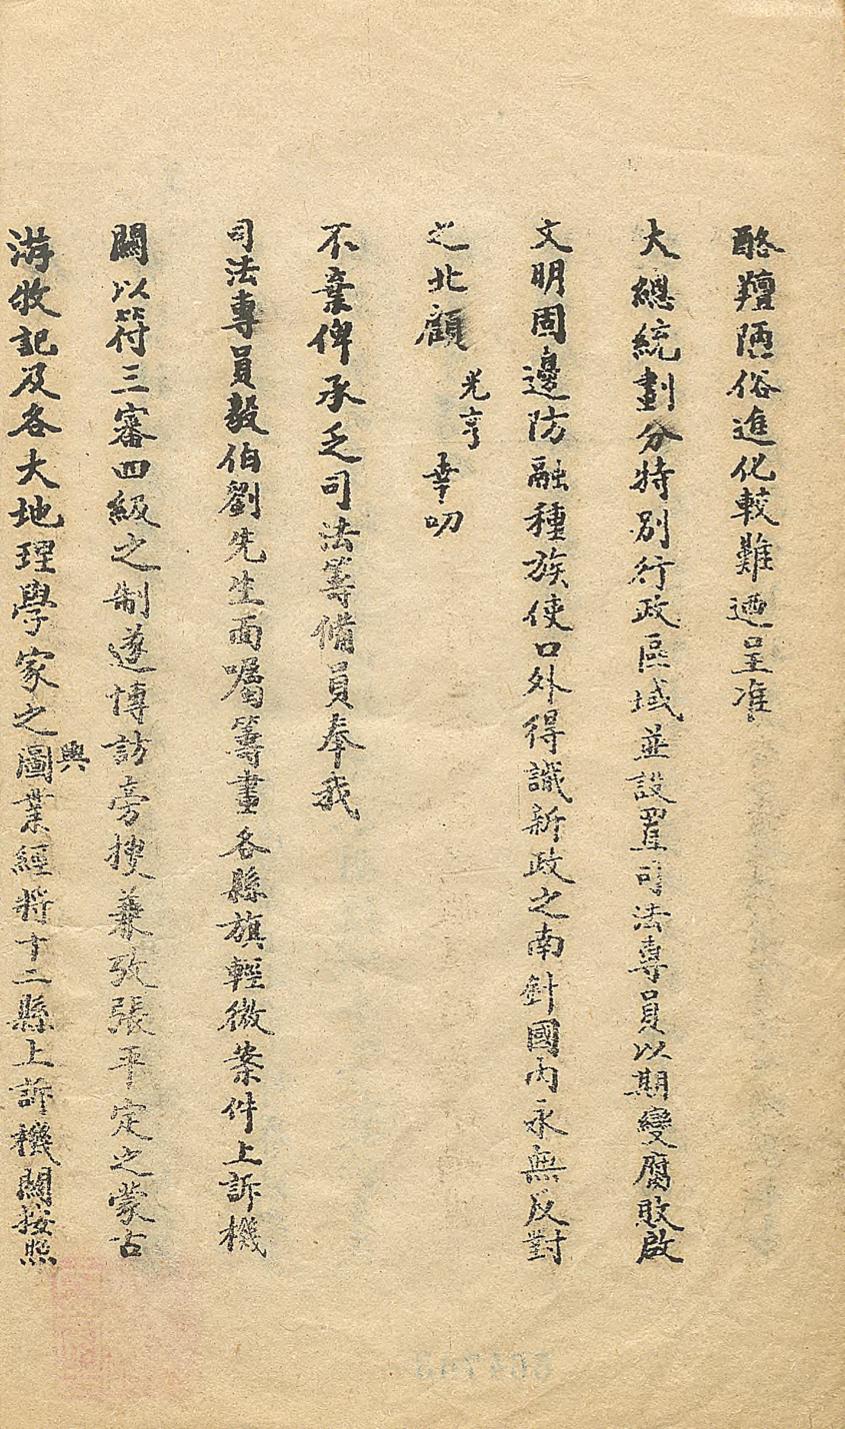 酪羶陋俗進化較難迺呈准
大總統劃分特別行政區域並設置司法專員以期變腐敗啟
文明固邊防融種族使口外得識新政之南針國內永無反對
之北顧光亨幸叨
不棄俾承乏司法籌備員奉我
司法專員毅伯劉先生面囑籌畫各縣旗輕微案件上訴機
關以符三審四級之制遂博訪旁搜兼攷張平定之蒙古
游牧記及各大地理學家之輿圖業經將十二縣上訴機關按照